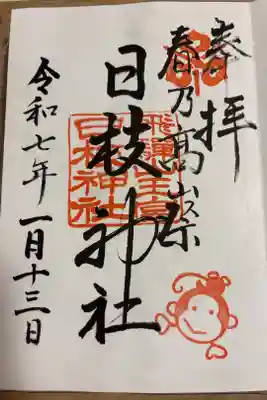 奉拝
春乃髙山祭
飛驒山王宮
日枝神社
日枝神社
令和七年一月十三日